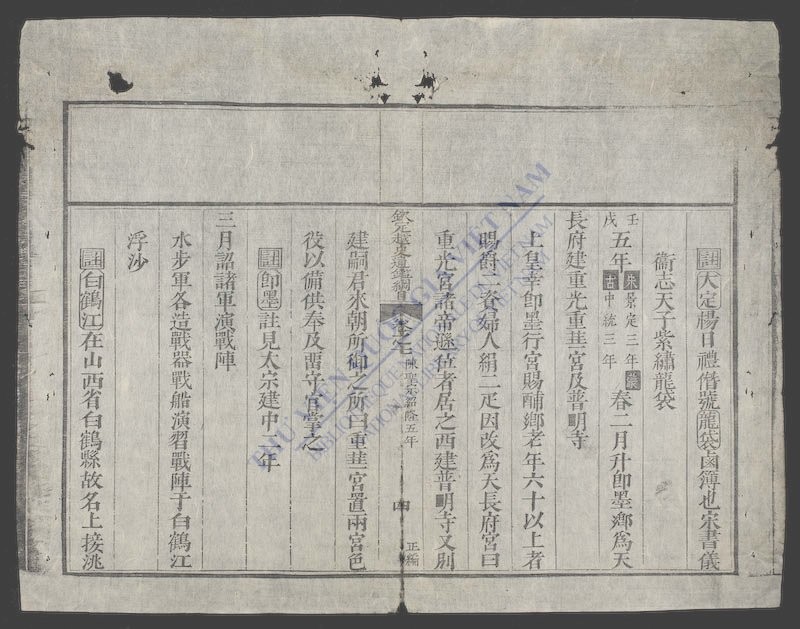 註大定楊日禮僭號龍袋鹵簿也宋書儀
衞志天子紫繡龍袋
壬戌五年宋景定三年蒙古中統三年春二月升卽墨鄉爲天
長府建重光重華宮及普明寺
上皇幸卽墨行宮賜酺鄉老年六十以上者
賜爵二資婦人絹二疋因改爲天長府宮曰
重光宮諸帝遜位者居之西建普明寺又別
欽定越史通鑑綱目 卷之七 陳聖宗紹隆五年 四 正編
建嗣君來朝所御之所曰重華宮置兩宮色
役以備供奉及畱守官掌之
註卽墨註見太宗建中二年
三月詔諸軍演戰陣
水步軍各造戰器戰船演習戰陣于白鶴江
浮沙
註白鶴江在山西省白鶴縣故名上接洮
THƯ VIỆN QUỐC GIA VIỆT NAM
BIBLIOTHÈQUE NATIONALE DU VIETNAM
NATIONAL LIBRARY OF VIETNAM